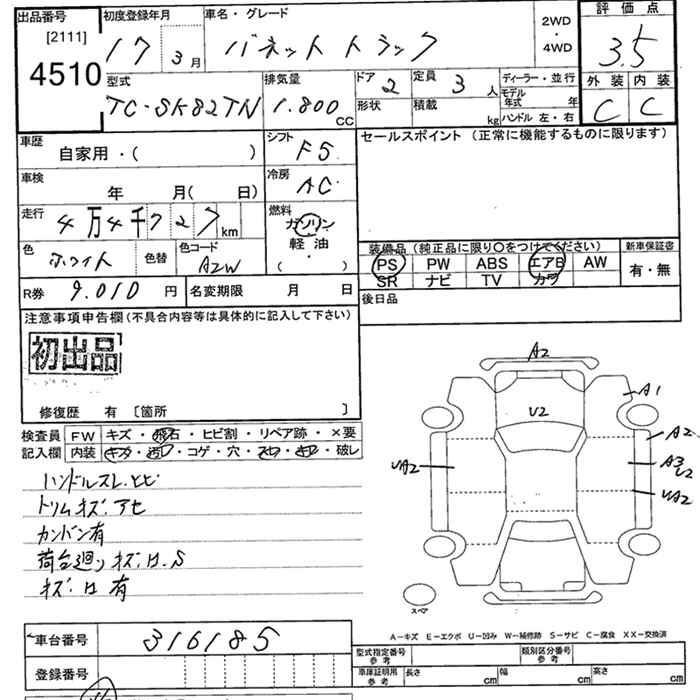 出品番号 初度登録年月 車名・グレード 2WD・4WD 評価点
[2111]
4510 17 3月 バネット トラック 3.5
型式 排気量 ドア 2 定員 3人 ディーラー・並行 外装 内装
TC-SK82TN 1.800 CC 形状 積載 kg モデル年式 年 C C
ハンドル 左・右
車歴 シフト セールスポイント (正常に機能するものに限ります)
自家用・( ) F5
車検 冷房
年 月( 日) AC
走行 燃料
4万4千727km ガソリン
軽油
・
( )
色 ホワイト 色替 色コード A2W
装備品 (純正品に限り〇をつけてください) 新車保証書
PS PW ABS エアB AW 有・無
SR ナビ TV カワ
R券 9.010円 名変期限 月 日
後日品
注意事項申告欄 (不具合内容等は具体的に記入して下さい)
初出品
修復歴 有 〔箇所 〕
検査員 FW キズ・飛石・ヒビ割・リペア跡・×要
記入欄 内装 キズ・汚レ・コゲ・穴・スレ・キレ・破レ
ハンドルスレ.ヒビ
トリムキズ.アセ
カンバン有
荷台廻りキズ.ロ.S
キズ.ロ有
A2
A1
U2
A2
A3
U2
UA2
UA2
スペア
A-キズ E-エクボ U-凹み W-補修跡 S-サビ C-腐食 XX-交換済
車台番号 316185
型式指定番号 参考 類別区分番号 参考
登録番号
車庫証明用 参考 長さ cm 幅 cm 高さ cm